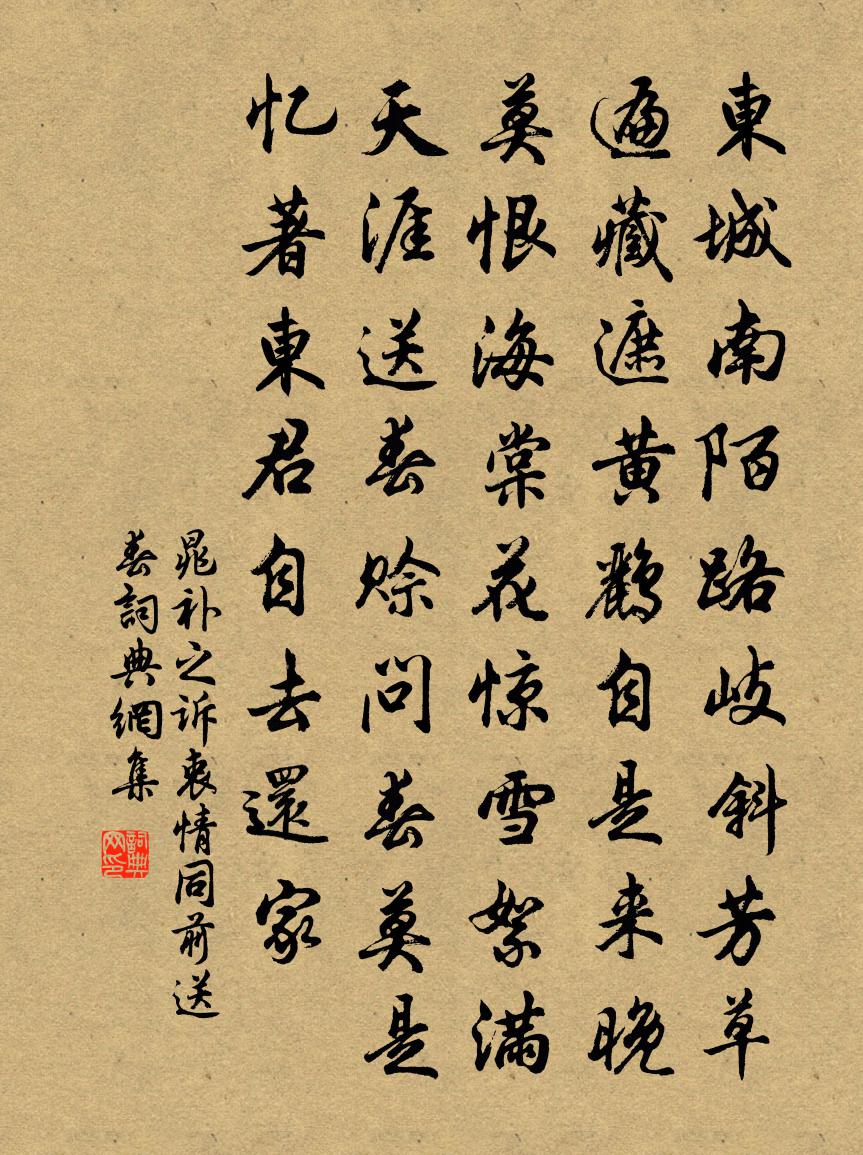 東城南陌路歧斜芳草
遍藏遮黄鸝自是来晚
莫恨海棠花惊雪絮满
天涯送春赊问春莫是
忆著東君自去還家
晁补之诉衷情同前送
春詞典網集
詞典網印